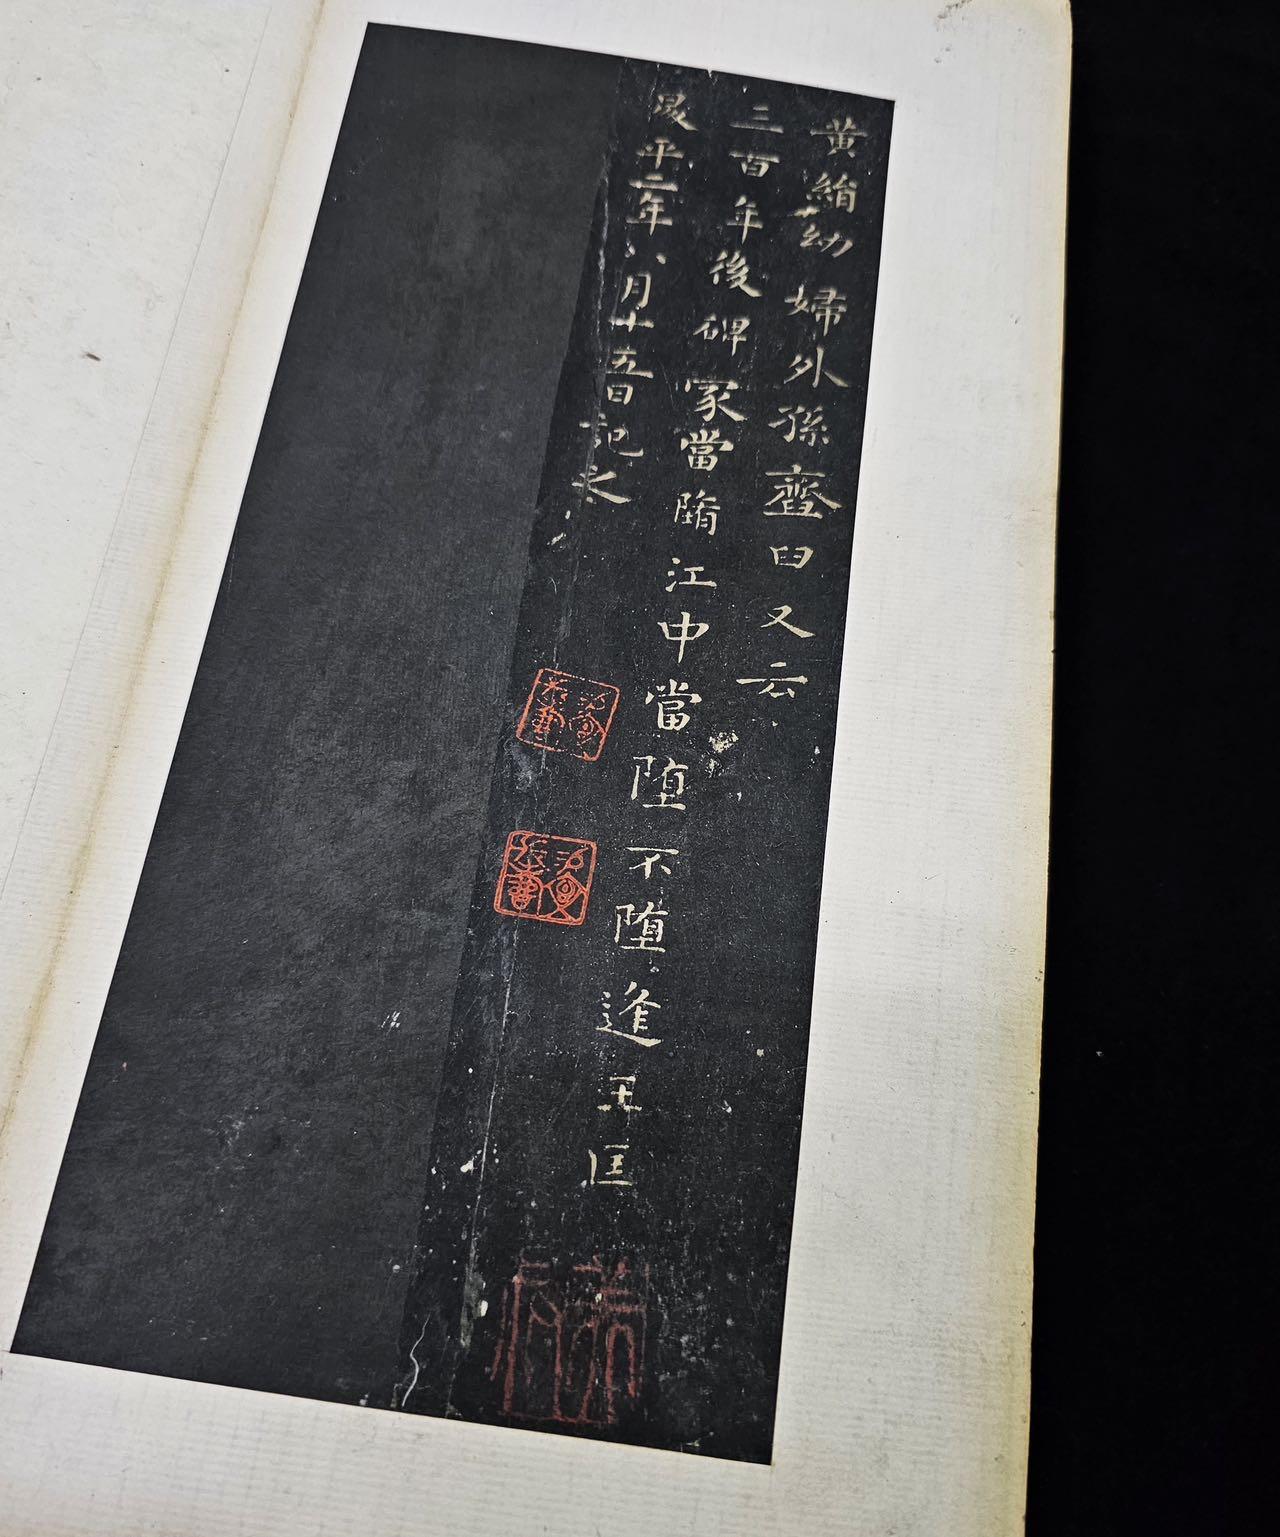 黄絹幼婦外孫齏臼又云
三百年後碑冢當隋江中當堕不堕逢王匡
昇平二年八月十五日記之